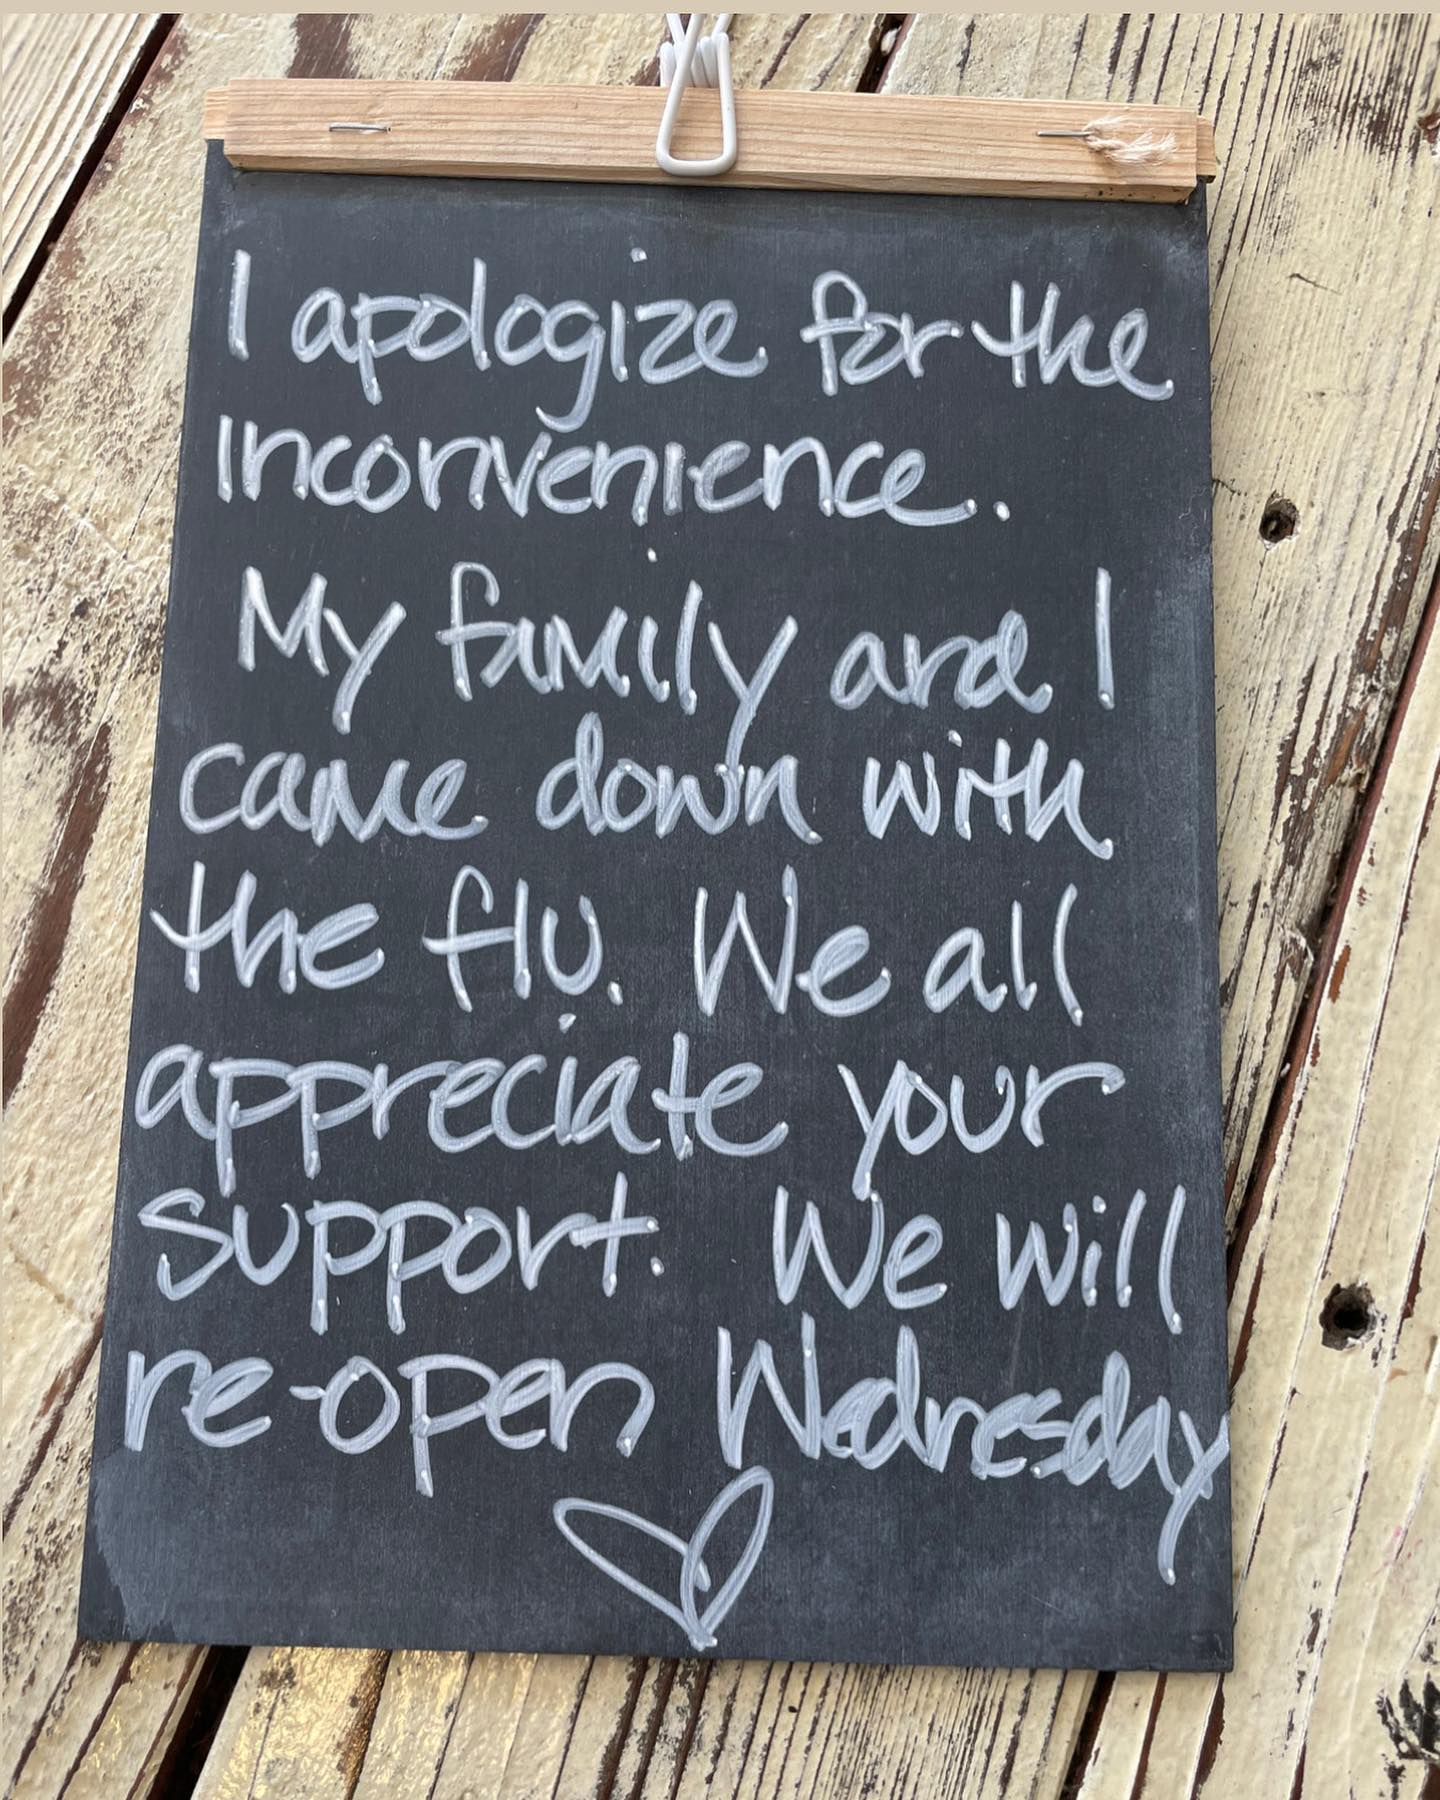 I apologize for the
inconvenience.
My family and I
came down with
the flu. We all
appreciate your
support. We will
re-open Wednesday